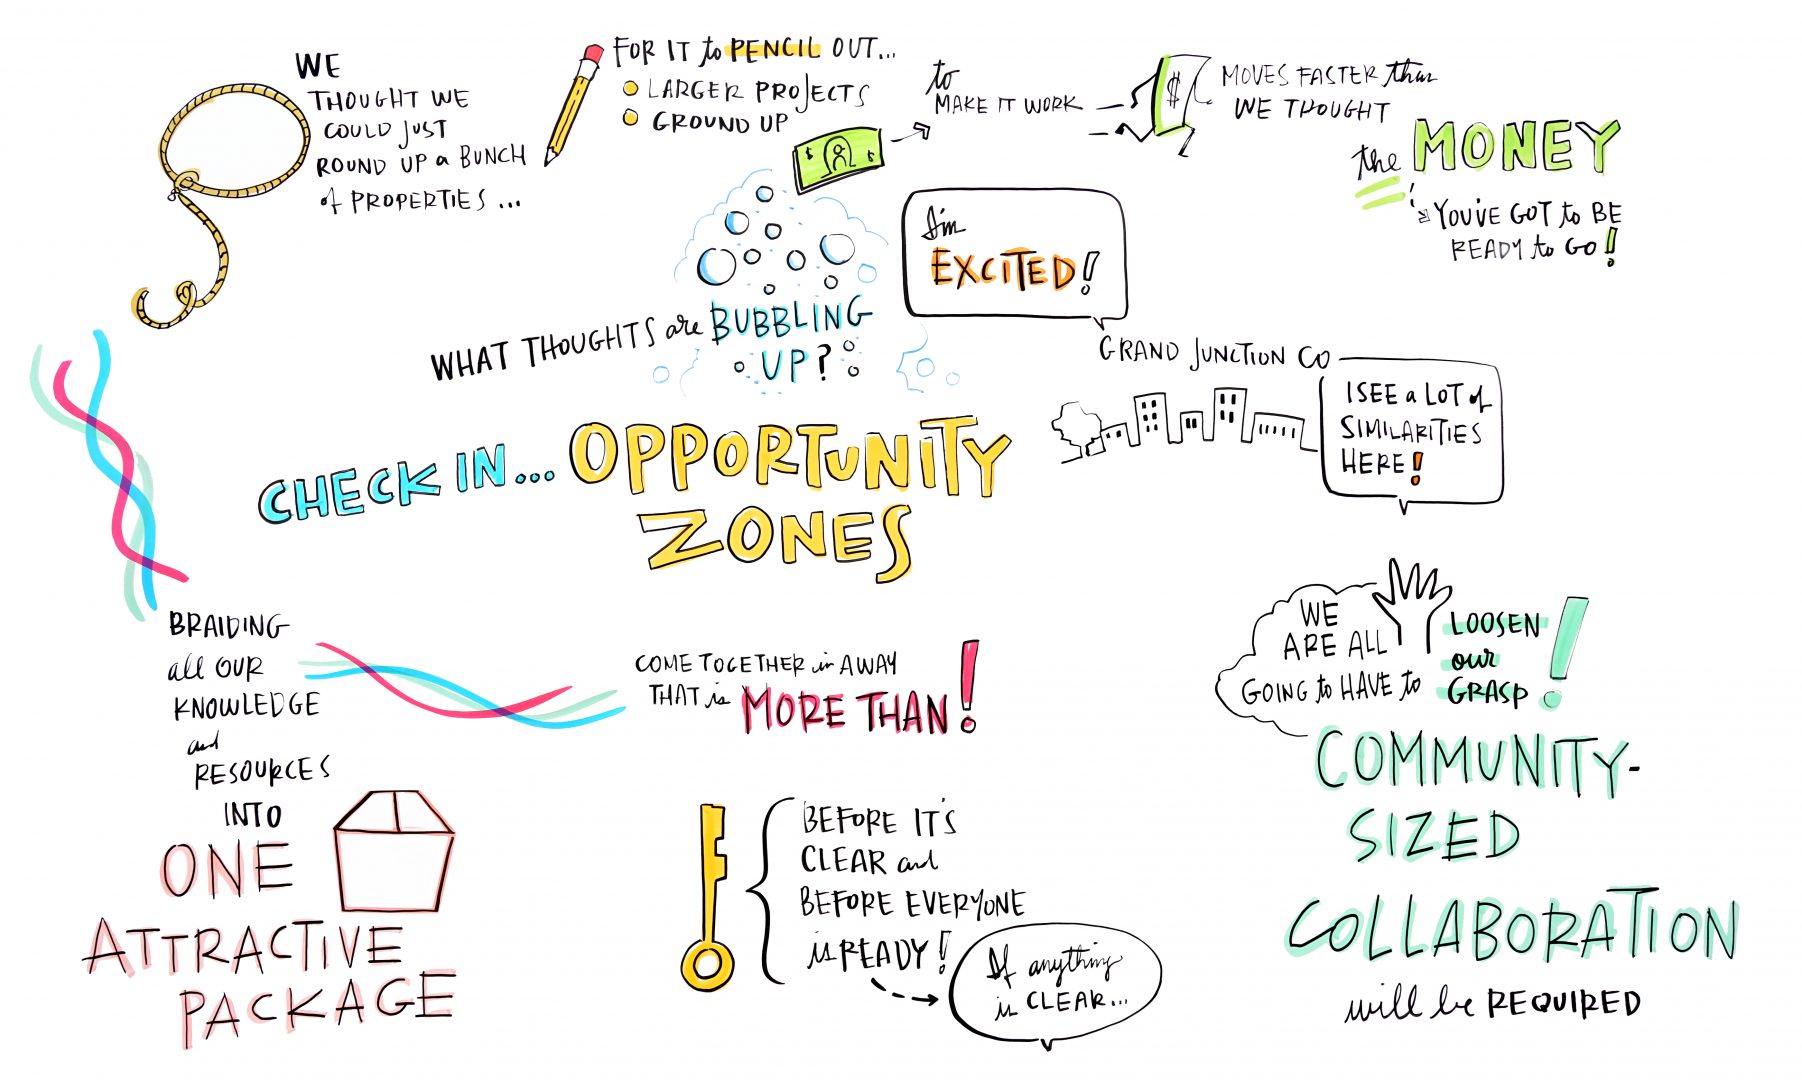 WE
THOUGHT WE
COULD JUST
ROUND UP a BUNCH
of PROPERTIES ...
FOR IT to PENCIL OUT...
LARGER PROJECTS
GROUND UP
to
MAKE IT WORK
$
MOVES FASTER than
WE THOUGHT
the MONEY
YOU'VE GOT to BE
READY to GO!
I'm
EXCITED!
WHAT THOUGHTS are BUBBLING
UP?
GRAND JUNCTION CO
I SEE a LOT of
SIMILARITIES
HERE!
CHECK IN... OPPORTUNITY
ZONES
BRAIDING
all OUR
KNOWLEDGE
and
RESOURCES
INTO
ONE
ATTRACTIVE
PACKAGE
COME TOGETHER in A WAY
THAT is MORE THAN!
BEFORE IT'S
CLEAR and
BEFORE EVERYONE
is READY!
If anything
is CLEAR...
WE
ARE ALL
GOING to HAVE to
LOOSEN
our
GRASP!
COMMUNITY-
SIZED
COLLABORATION
will be REQUIRED